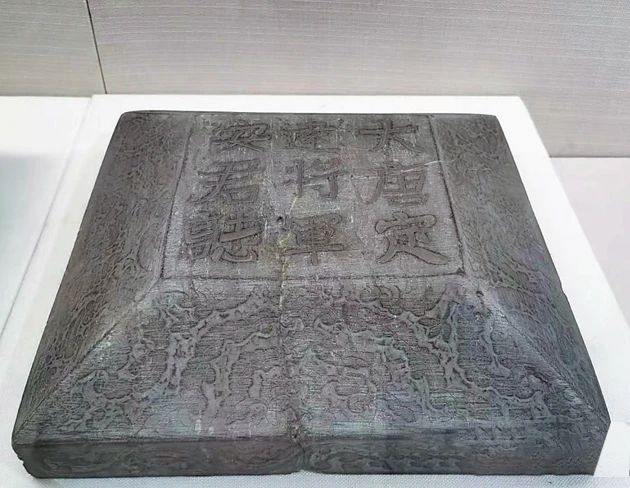 大唐定
遠将軍
安君誌